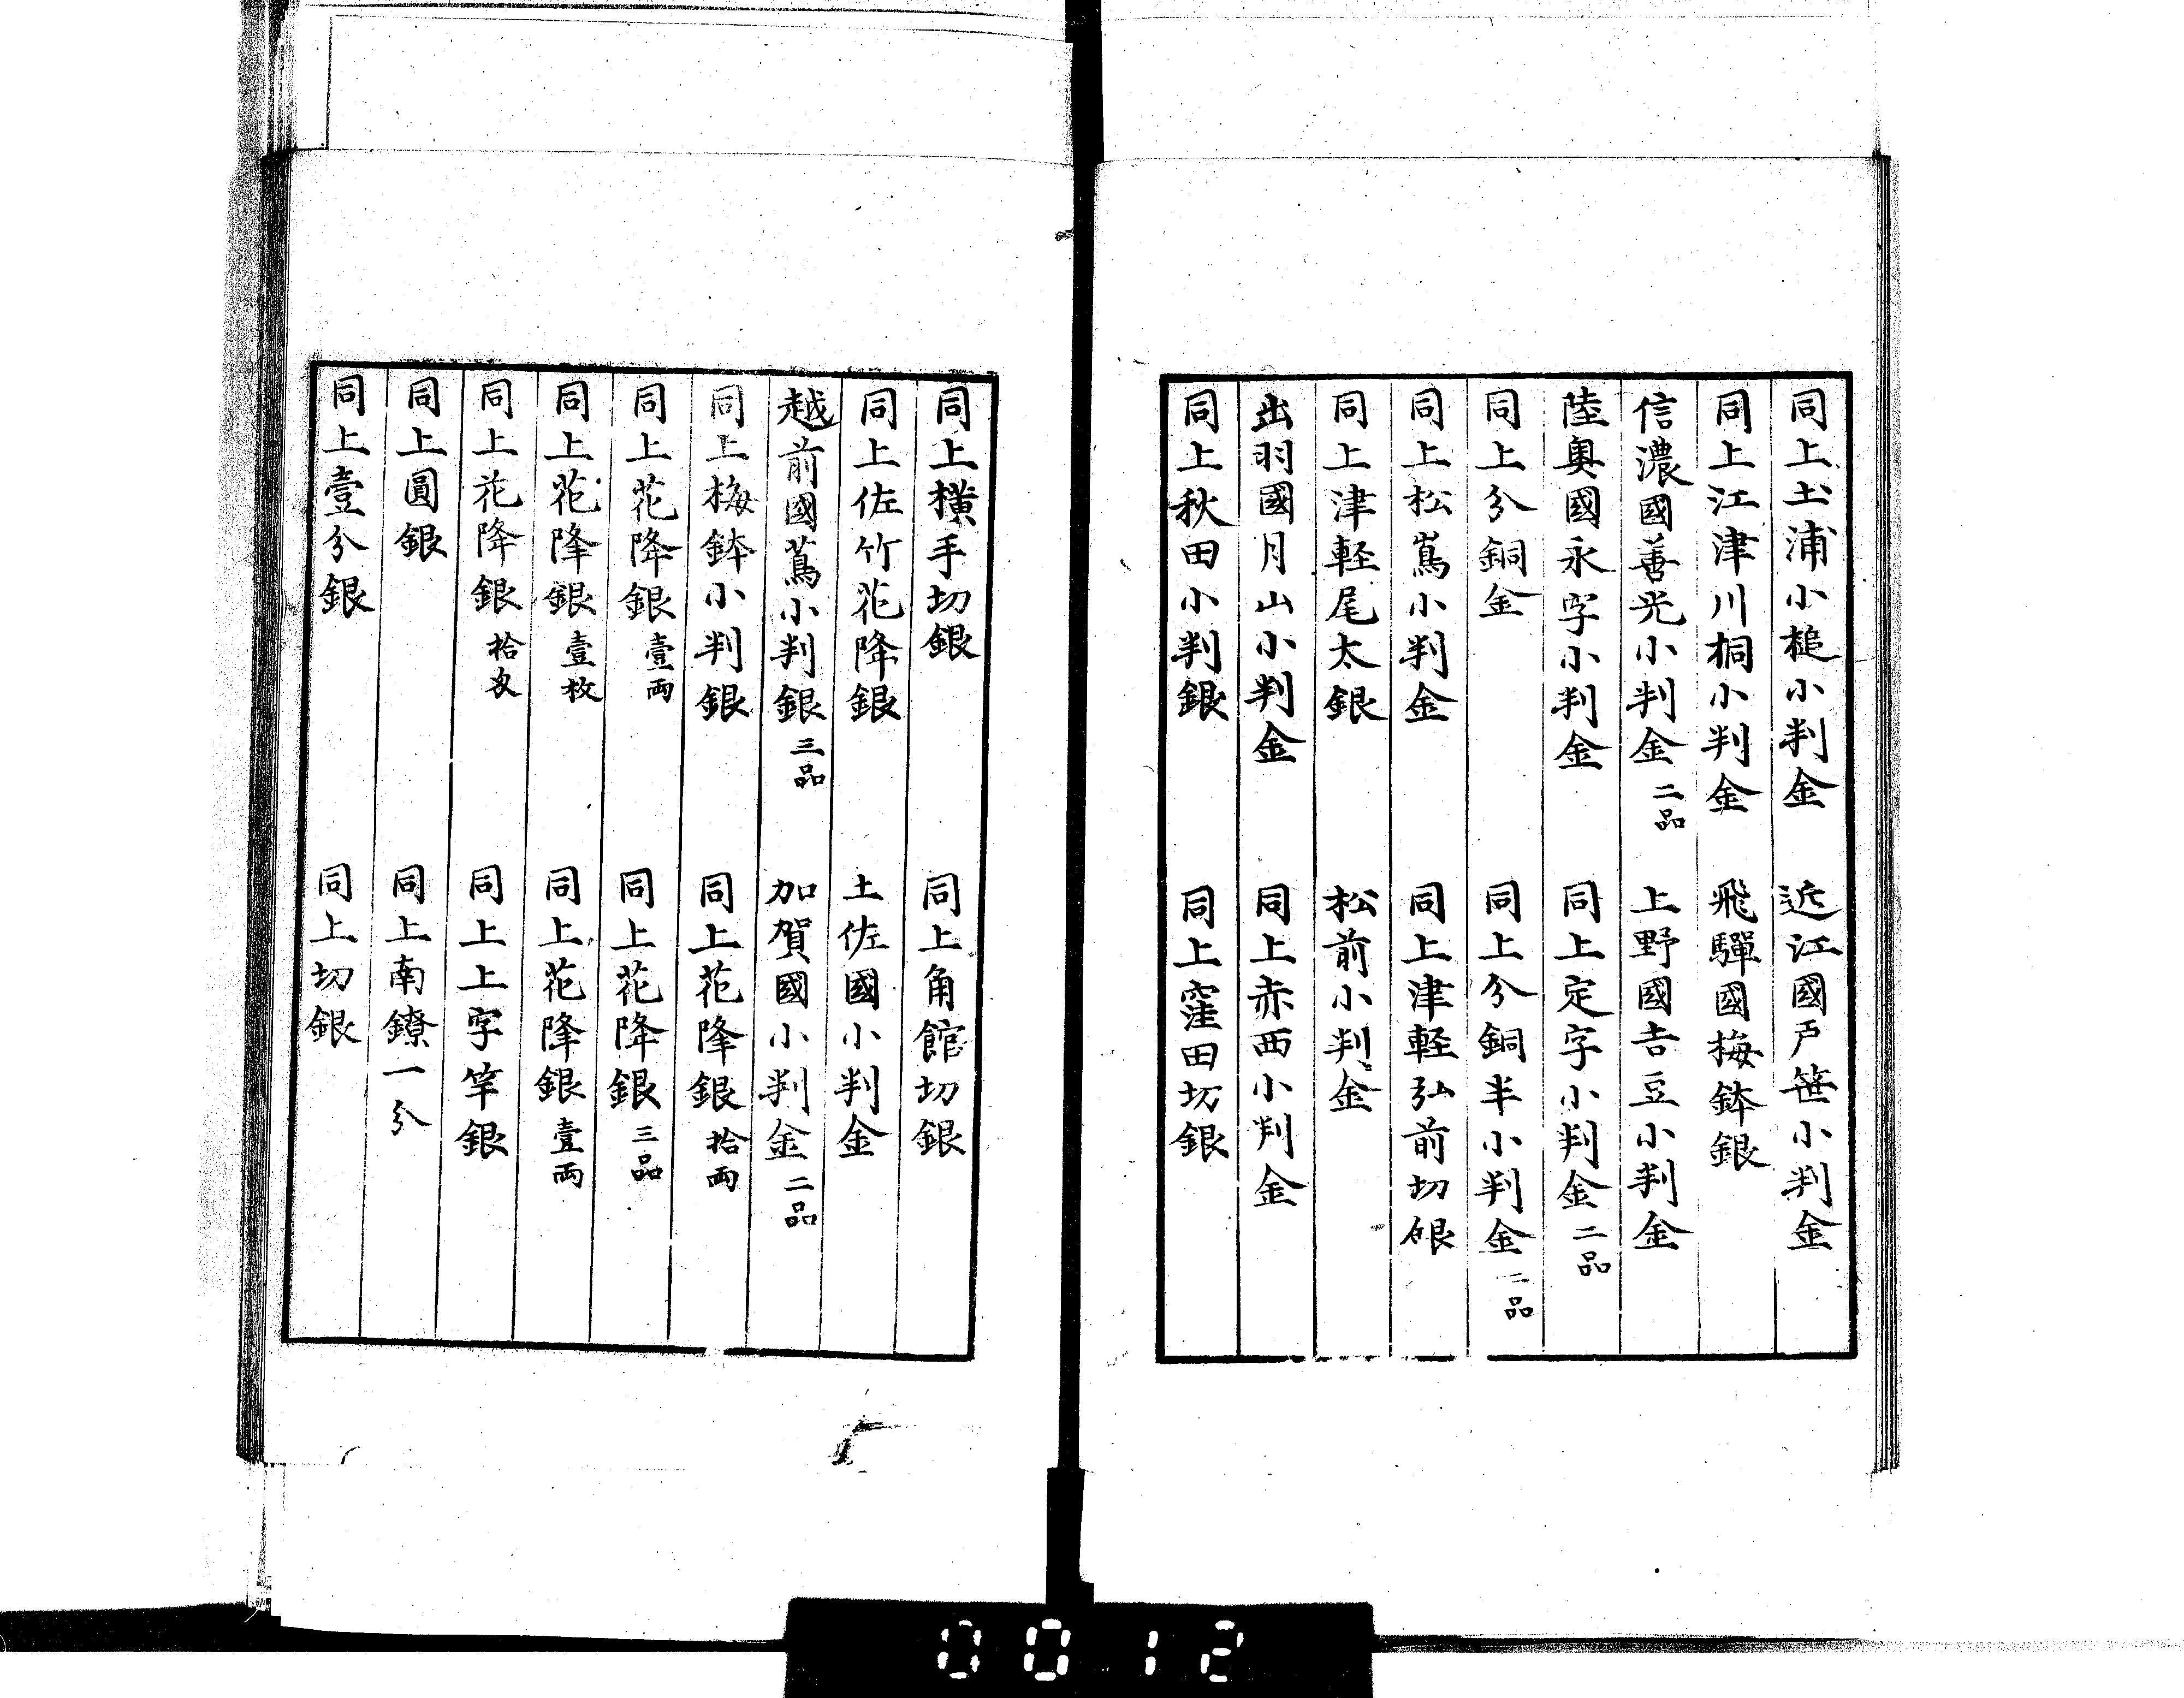 同上土浦小槌小判金　近江國戸笹小判金
同上江津川桐小判金　飛驒國梅鉢銀
信濃國善光小判金二品　上野國吉豆小判金
陸奥國永字小判金　同上定字小判金二品
同上分銅金　同上分銅半小判金二品
同上松嶌小判金　同上津軽弘前切銀
同上津軽尾太銀　松前小判金
出羽國月山小判金　同上赤西小判金
同上秋田小判銀　同上窪田切銀
同上横手切銀　同上角館切銀
同上佐竹花降銀　土佐國小判金
越前國蔦小判銀三品　加賀國小判金二品
同上梅鉢小判銀　同上花降銀拾両
同上花降銀壹両　同上花降銀三品
同上花降銀壹枚　同上花降銀壹両
同上花降銀拾匁　同上上字竿銀
同上圓銀　同上南鐐一分
同上壹分銀　同上切銀
0012